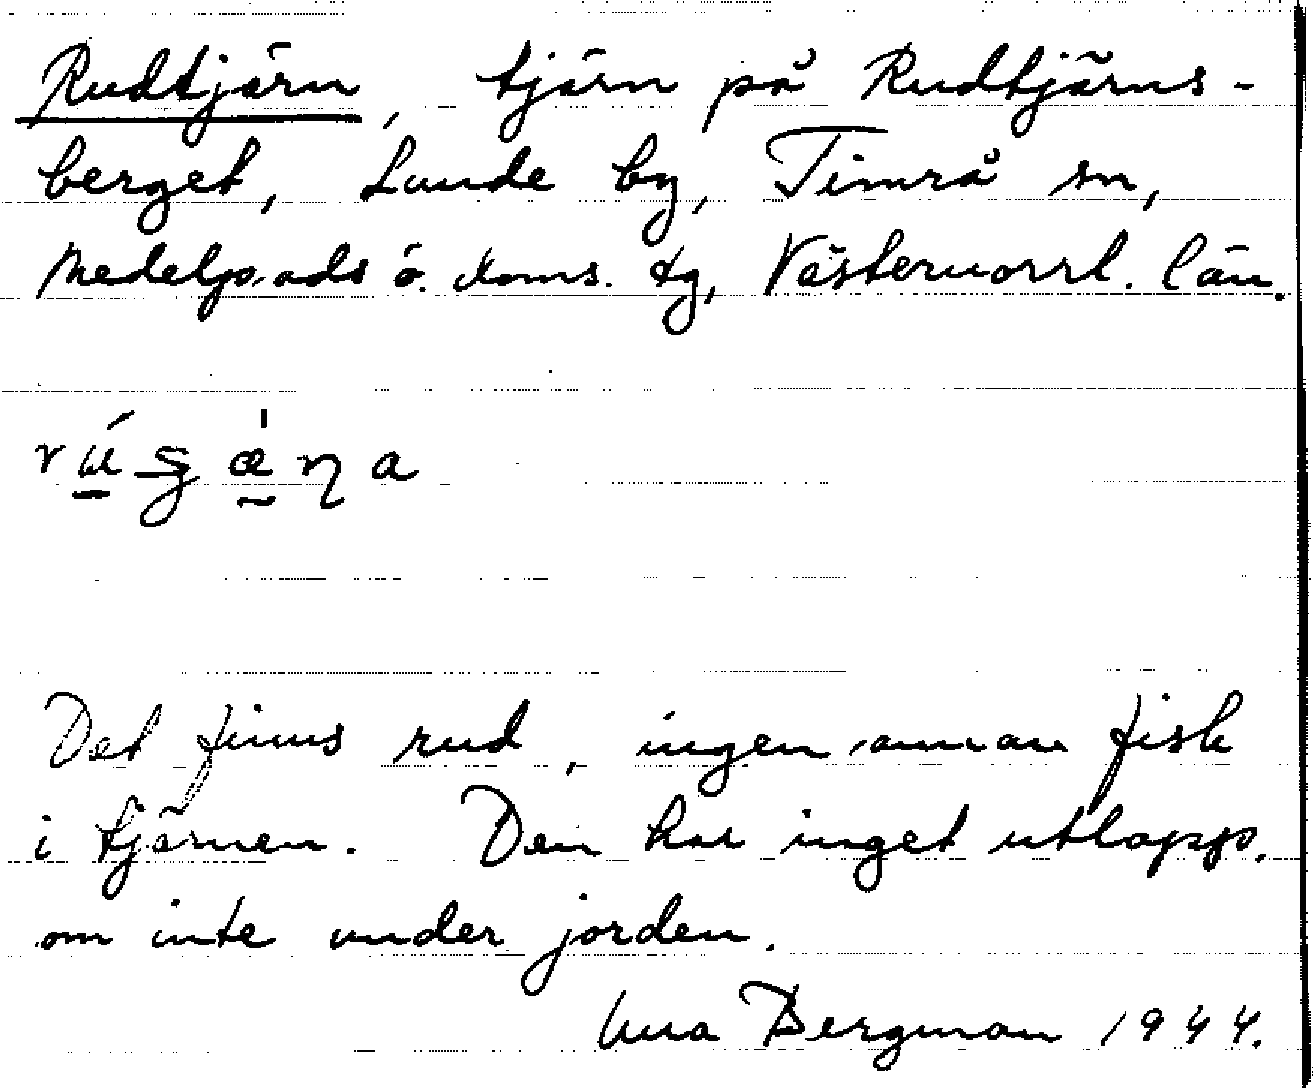 Rudtjärn, tjärn på Rudtjärns-
berget, Lunde by, Timrå sn,
Medelpads ö. doms. tg, Västernorrl. län.
Det finns rud, ingen annan fisk
i tjärnen. Den har inget utlopp.
om inte under jorden.
Bergman 1944.